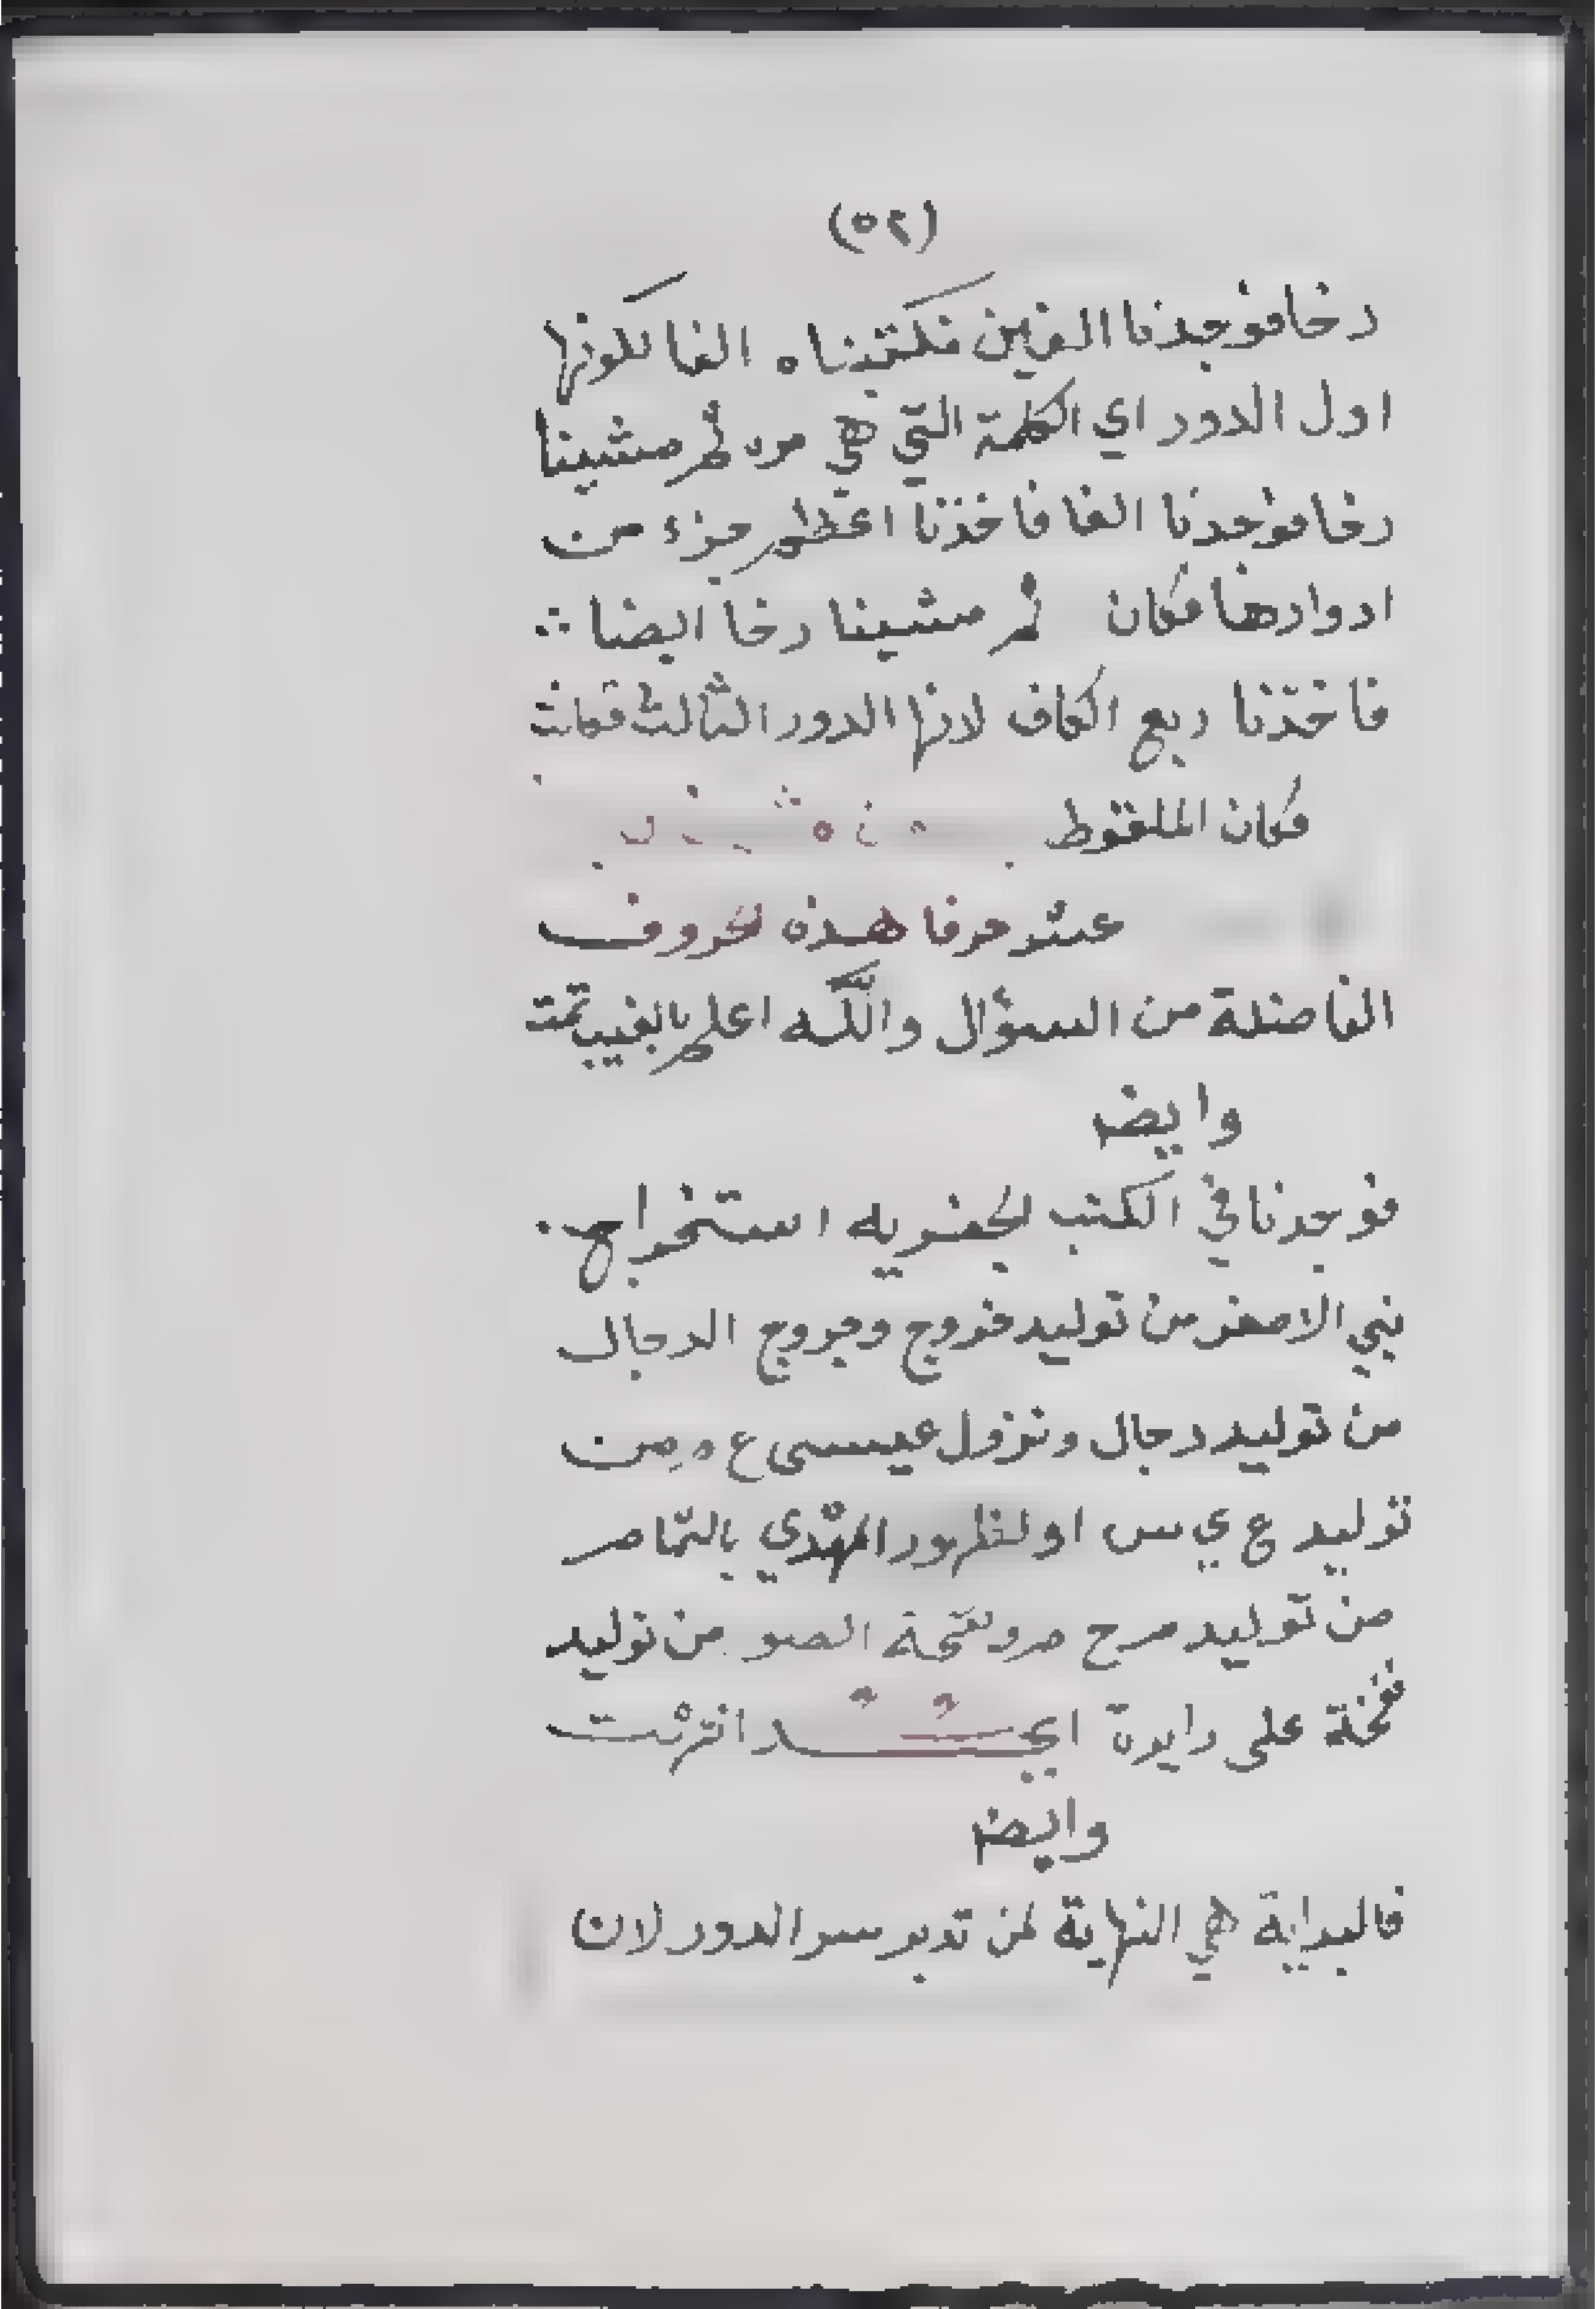 (٥٢)
رخا فوجدنا الفين فكتبناه الفا لكونها
اول الدور اي الكلمة التي هي مره ثم مشينا
رخا فوجدنا الفا فاخذنا اعظم جزء من
ادوارها فكان ثم مشينا رخا ايضا
فاخذنا ربع الكاف لانها الدور الثالث فكانت
فكان الملفوظ
عشر حرفا هذه الحروف
الفاضلة من السؤال والله اعلم بالغيب تمت
وايضا
فوجدنا في الكتب الجفريه استخراج
بني الاصفر من توليد فروج وخروج الدجال
من توليد دجال ونزول عيسى ع م من
توليد ع ي س او لظهور المهدي بالتماصر
من توليد مرح ونفخة الصور من توليد
نفخة على دايرة ابجد انتهت
وايضا
فالبداية هي النهاية لمن تدبر سر الدور لان